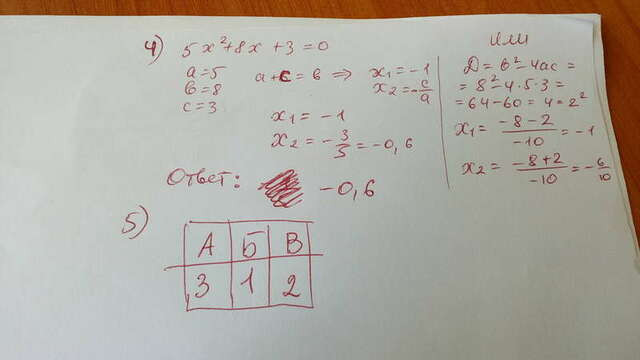 4) 5x²+8x+3=0
a=5
b=8
c=3
a+c=b ⇒ x₁=-1
x₂=-c/a
x₁=-1
x₂=-3/5=-0,6
Ответ: -0,6
или
D=b²-4ac=
=8²-4·5·3=
=64-60=4=2²
x₁=(-8-2)/-10=-1
x₂=(-8+2)/-10=-6/10
5)
А Б В
3 1 2